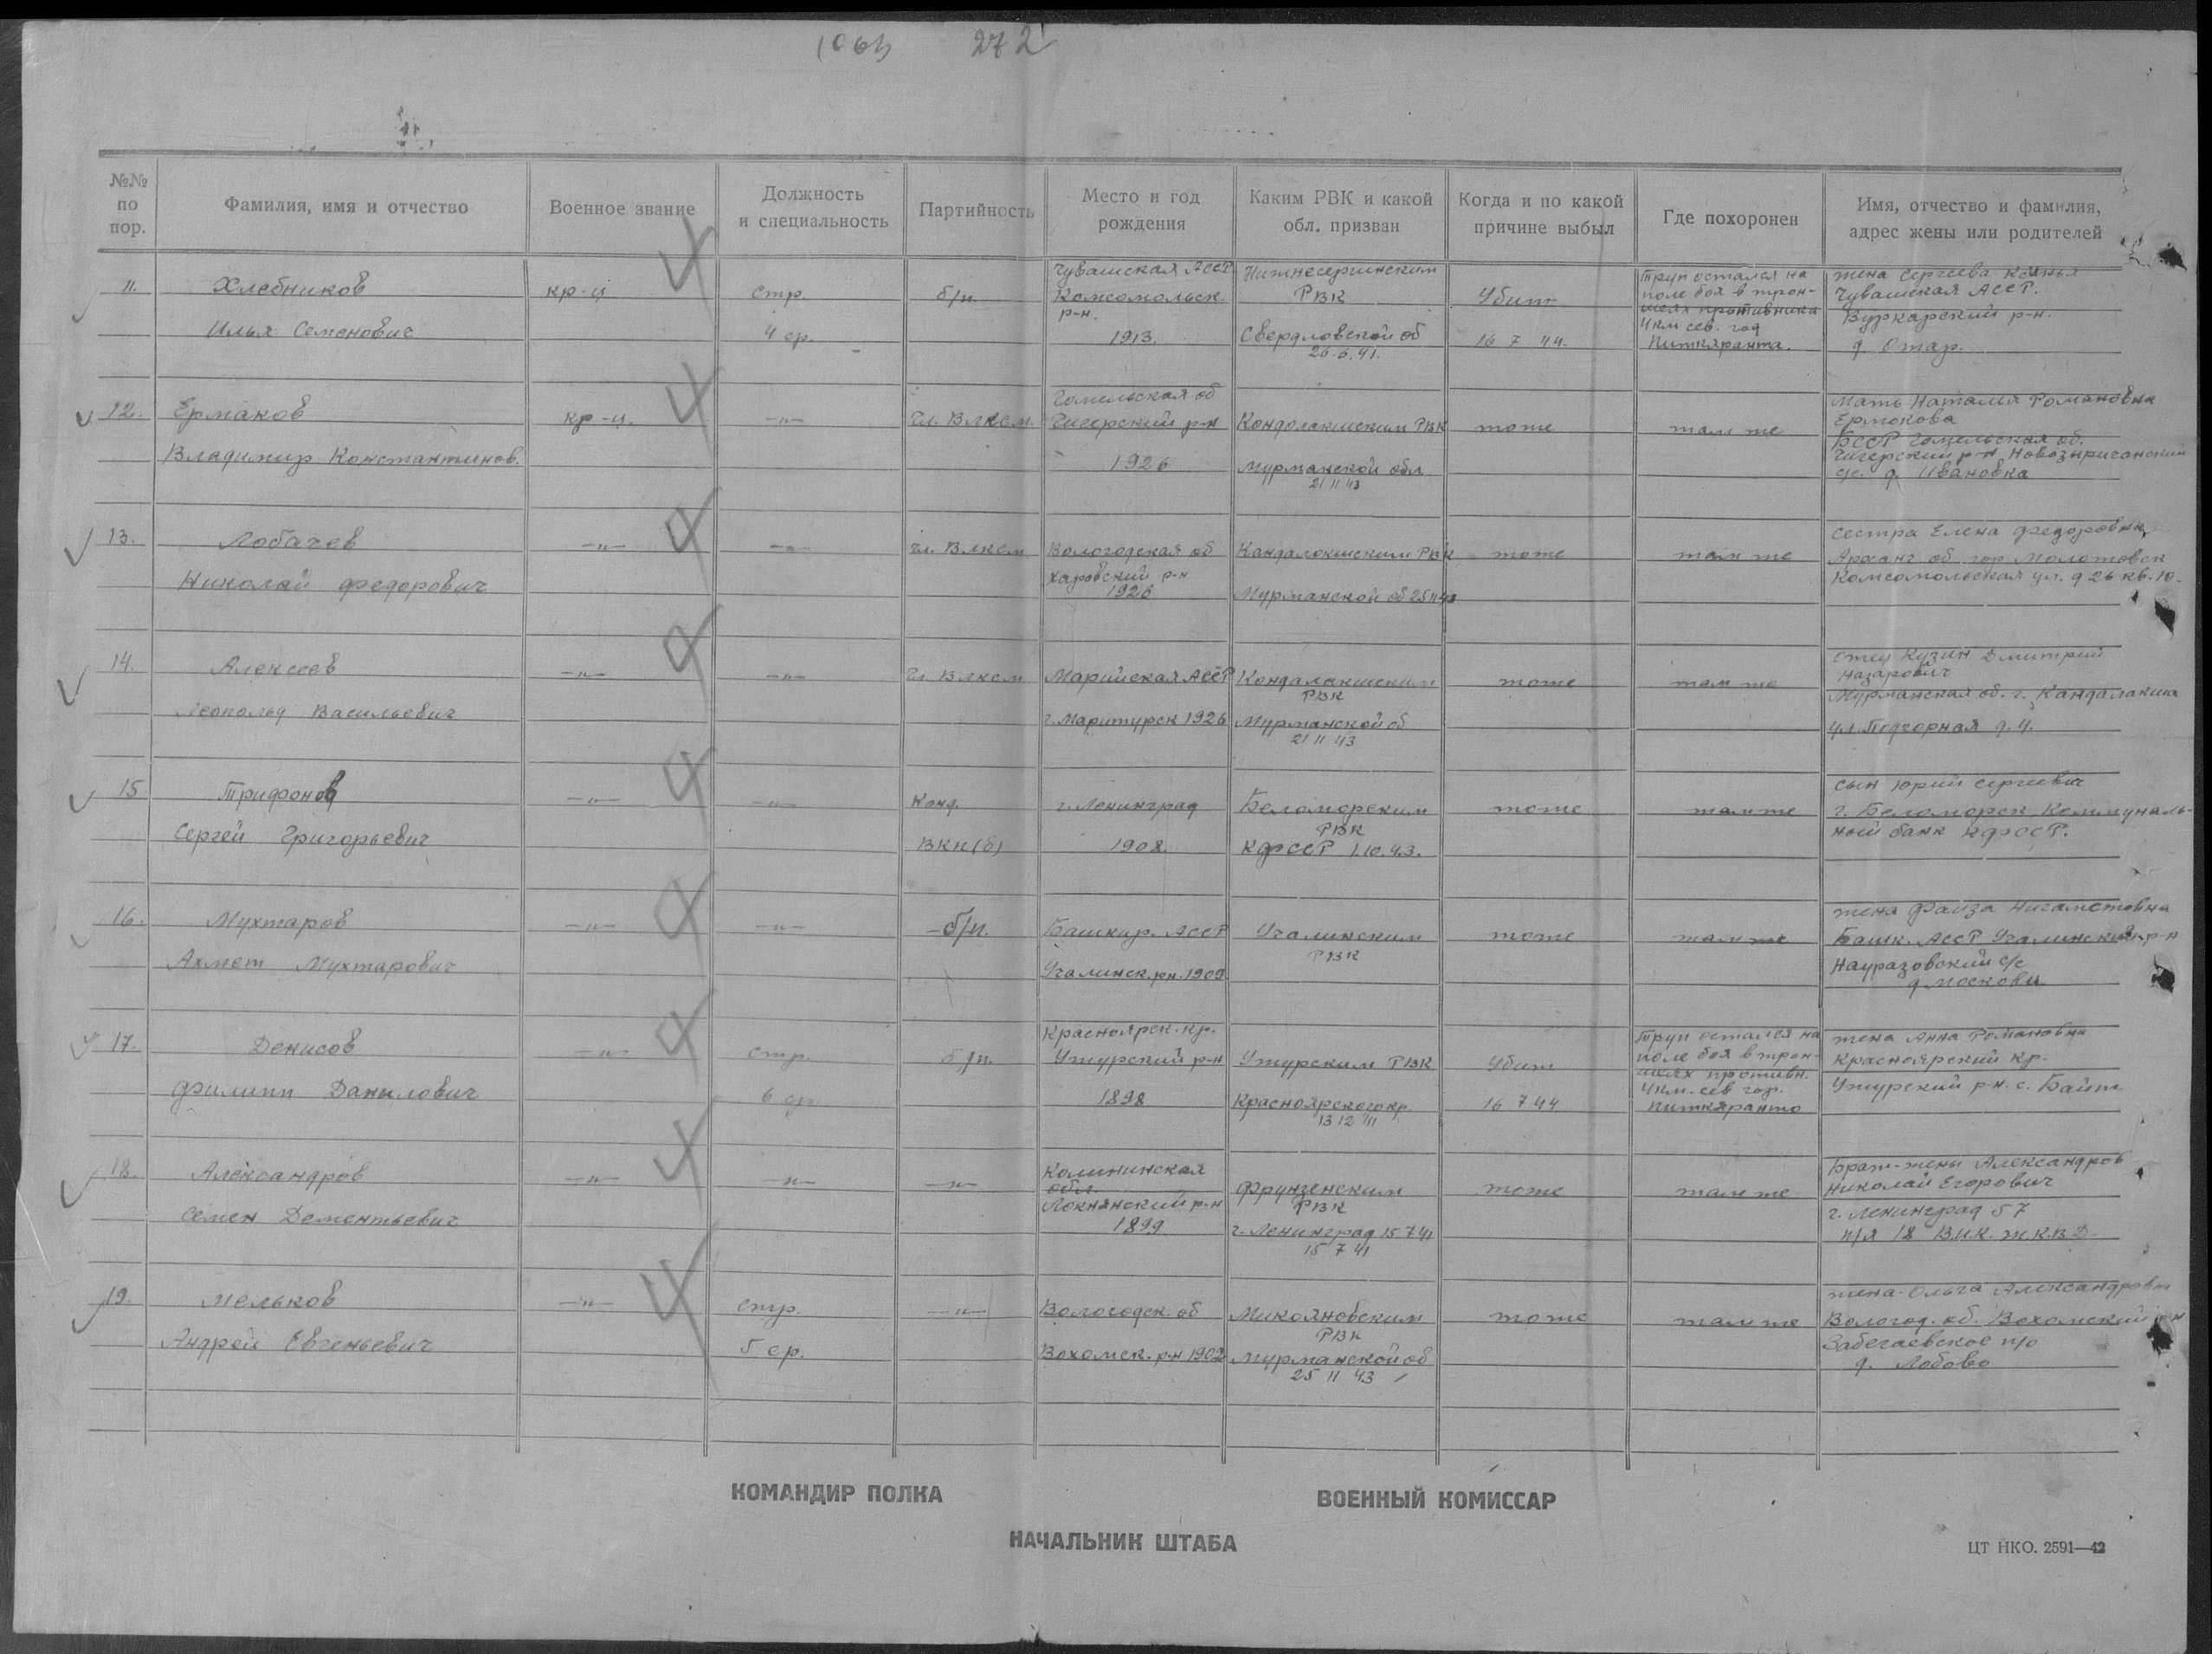 272
№№ по пор.
Фамилия, имя и отчество
Военное звание
Должность и специальность
Партийность
Место и год рождения
Каким РВК и какой обл. призван
Когда и по какой причине выбыл
Где похоронен
Имя, отчество и фамилия, адрес жены или родителей
11. Хлебников
Илья Семенович
кр-ц
стр.
4 ср.
б/п.
Чувашская АССР
Комсомольск.
р-н.
1913.
Нижнесергинским
РВК
Свердловской об
26.6.41.
Убит
16 7 44.
Труп остался на
поле боя в тран-
шеях противника
4 км сев. гор
Питкяранта.
жена Сергеева
Чувашская АССР.
Вурнарский р-н.
д. Отар.
12. Ермаков
Владимир Константинов.
кр-ц.
—"—
Чл. Влксм.
Гомельская об
Чичерский р-н
1926
Кондолакшским РВК
Мурманской обл
21 11 43
тоже
там же
Мать Наталья Романовна
Ермокова
БССР Гомельская об.
Чичерский р-н
с/с. д. Ивановка
13. Лобачев
Николай Федорович
—"—
—"—
Чл. Влксм
Вологодская об
Харовский р-н
1926
Кандалокшским РВК
Мурманской об 25 11 43
тоже
там же
Сестра Елена Федоровна
Арханг об гор Молотовск
Комсомольская ул. д 26 кв. 10.
14. Алексеев
Леопольд Васильевич
—"—
—"—
Чл Влксм
Марийская АССР
г. Маритурск 1926
Кондалакшским
РВК
Мурманской об
21 11 43
тоже
там же
отец Кузин Дмитрий
Назарович
Мурманская об. г. Кандалакша
ул. Подгорная д. 4.
15 Трифонов
Сергей Григорьевич
—"—
—"—
Конд.
ВКП(б)
г. Ленинград
1908
Беломорским
РВК
КФССР 1.10.43.
тоже
там же
сын Юрий Сергеевич
г. Беломорск Коммуналь-
ный банк КФССР.
16. Мухтаров
Ахмет Мухтарович
—"—
—"—
-б/п.
Башкир. АССР
Учалинск. рн. 1909
Учалинским
РВК
тоже
там же
жена Фаиза Нигаметовна
Башк. АССР Учалинский р-н
Науразовский с/с
д Москова
17. Денисов
Филипп Данилович
—"—
стр.
6 ср.
б/п.
Красноярск. кр.
Ужурский р-н
1898
Ужурским РВК
Красноярского кр
Убит
16 7 44
Труп остался на
поле боя в тран-
шеях противн.
4 км. сев гор.
Питкяранто
жена Анна Романовна
Красноярский кр.
Ужурский р-н. с. Байт
18. Александров
Семен Дементьевич
—"—
—"—
—"—
Калининская
обл.
Локнянский р-н
1899
Фрунзенским
РВК
г. Ленинград 15 7 41
15 7 41
тоже
там же
Брат-жены Александров
Николай Егорович
г. Ленинград 57
п/я 18
19. Мельков
Андрей Евгеньевич
—"—
стр.
5 ср.
—"—
Вологодск. об
Вохомск. р-н 1902
Микояновским
РВК
Мурманской об
25 11 43
тоже
там же
жена-Ольга Александровн
Вологод. об. Вохомский р-н
Забегаевское п/о
д. Лобово
КОМАНДИР ПОЛКА
ВОЕННЫЙ КОМИССАР
НАЧАЛЬНИК ШТАБА
ЦТ НКО. 2591—42